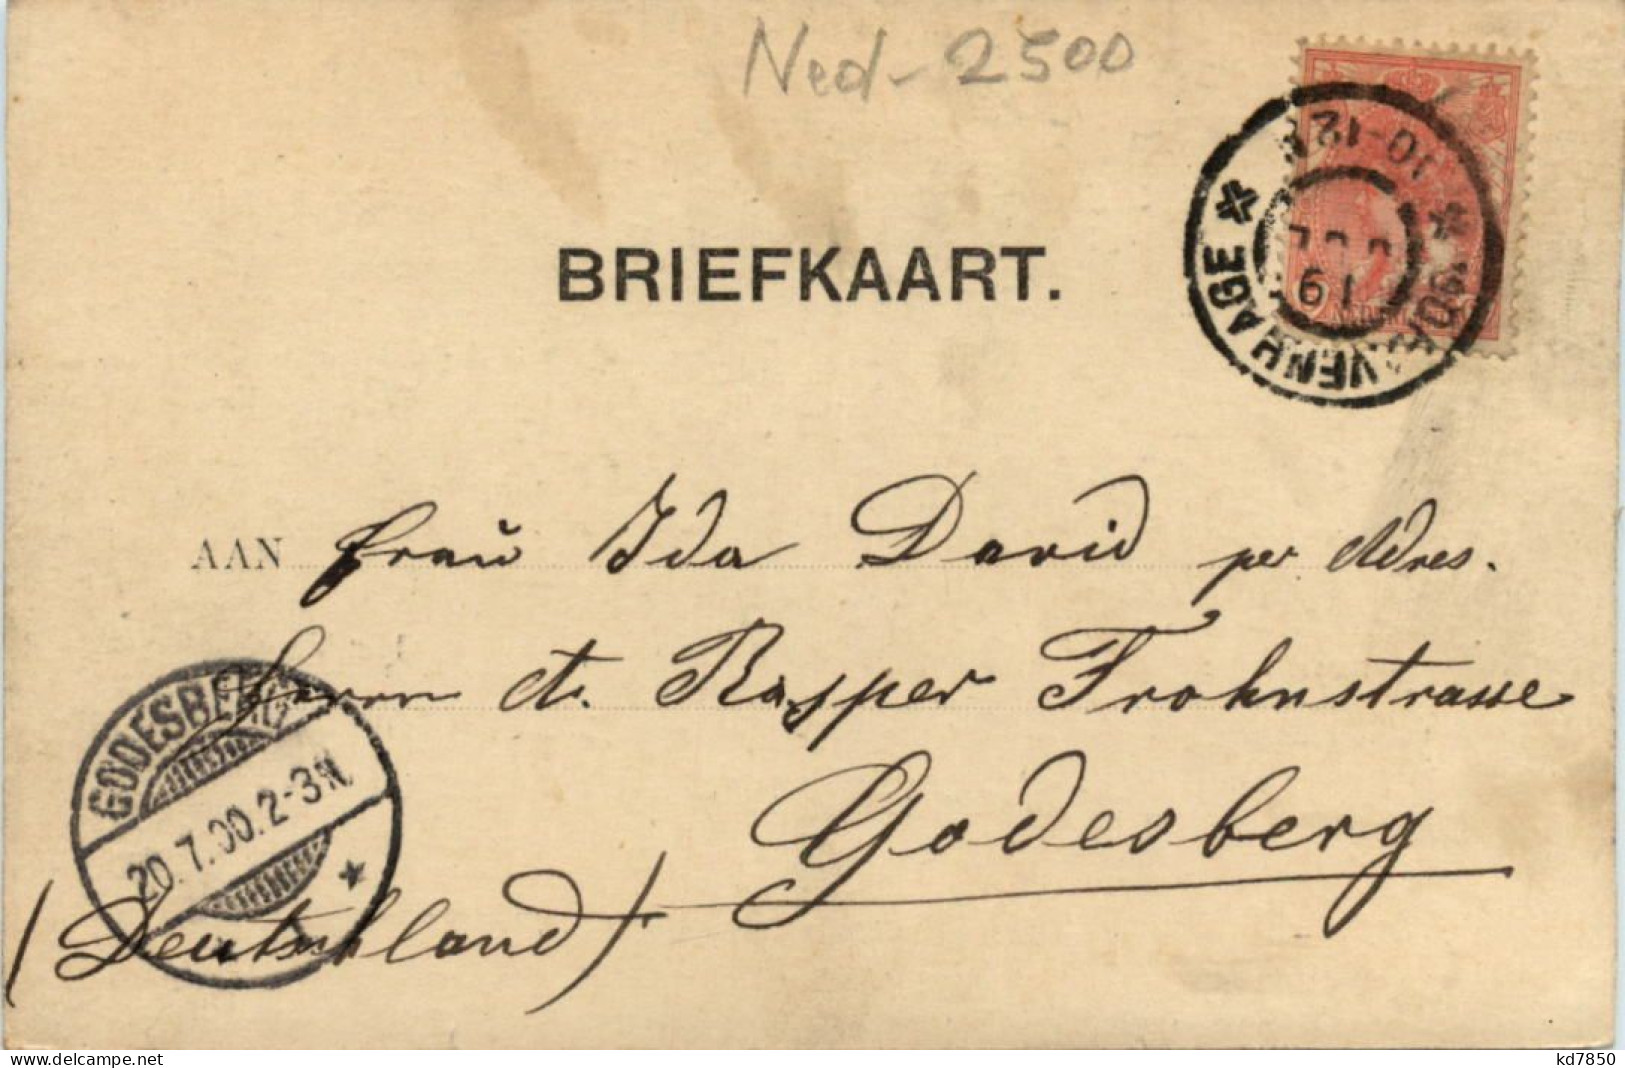 Ned - 2500
BRIEFKAART.
10-12
19 JUL
'SGRAVENHAGE
AAN Frau Ida David per Adres.
Herrn A. Rasper Frohnstrasse
Godesberg
(Deutschland)
GODESBERG
20.7.00.2-3N
www.delcampe.net
kd7850